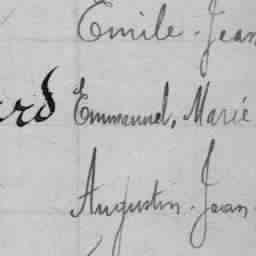 Emile. Jean
Emmanuel, Marie
Augustin. Jean